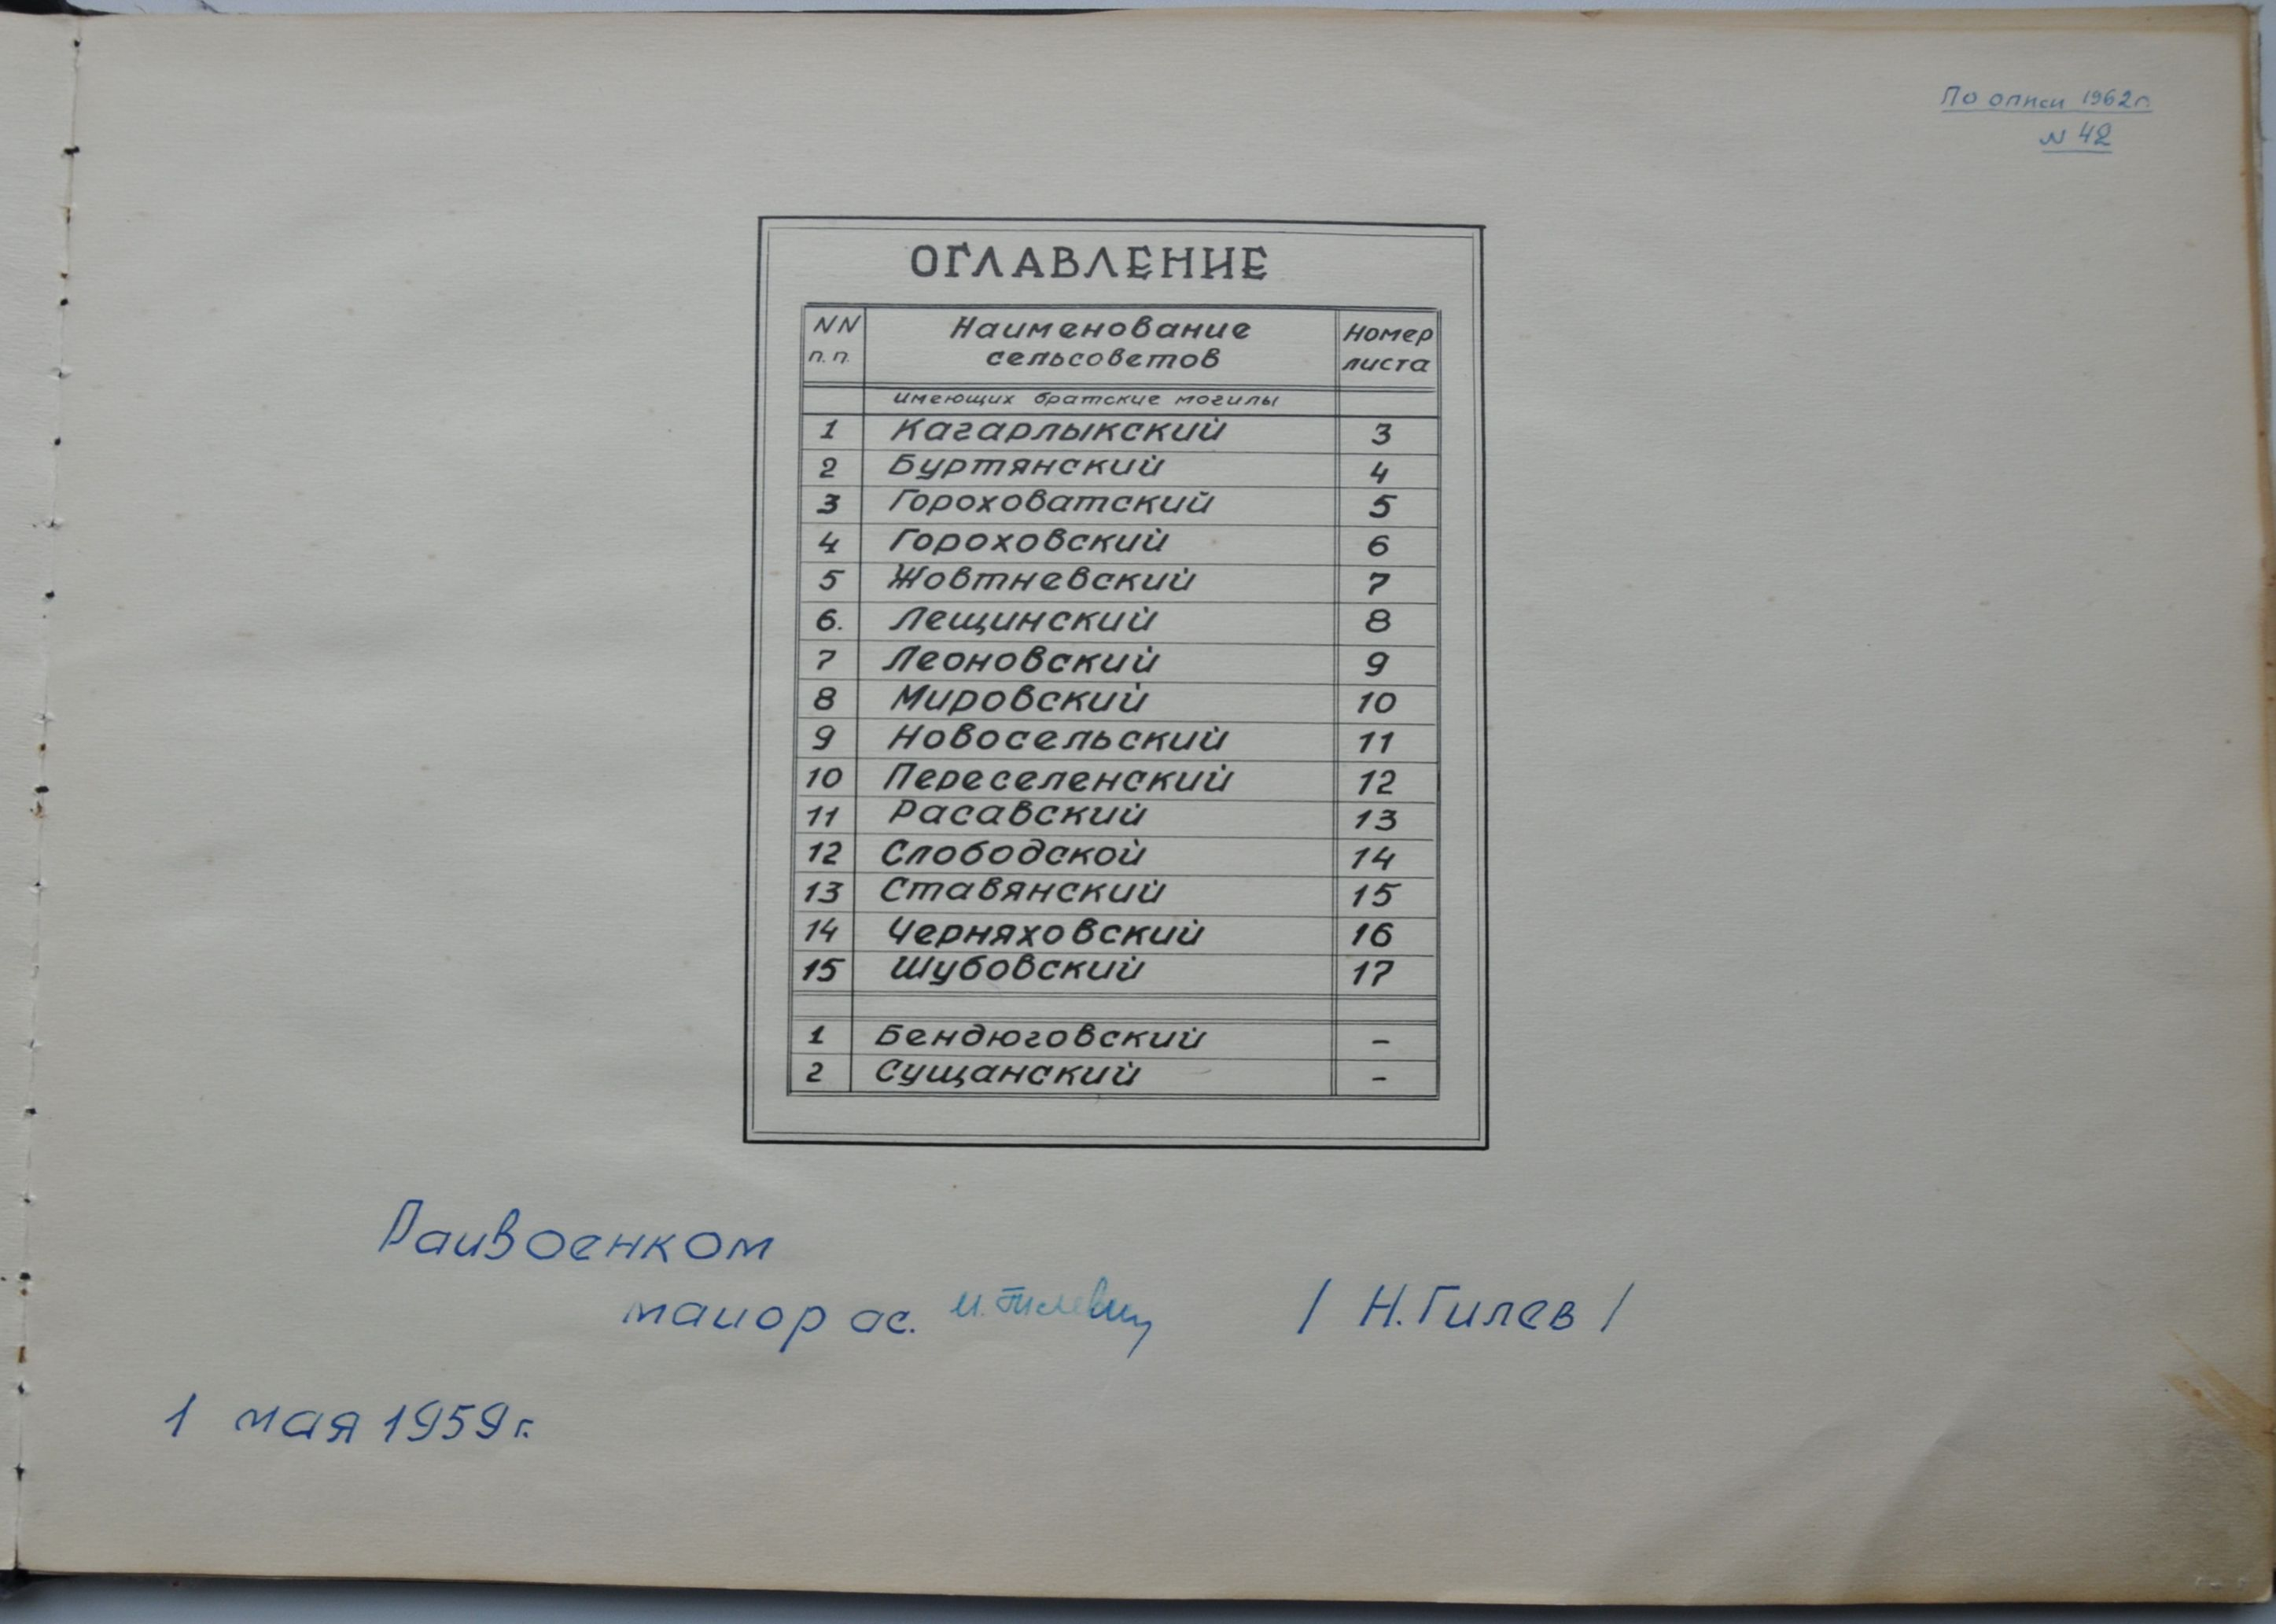 По описи 1962г.
N 42
ОГЛАВЛЕНИЕ
NN п.п. Наименование сельсоветов Номер листа
имеющих братские могилы
1 Кагарлыкский 3
2 Буртянский 4
3 Гороховатский 5
4 Гороховский 6
5 Жовтневский 7
6. Лещинский 8
7 Леоновский 9
8 Мировский 10
9 Новосельский 11
10 Переселенский 12
11 Расавский 13
12 Слободской 14
13 Ставянский 15
14 Черняховский 16
15 Шубовский 17
1 Бендюговский -
2 Сущанский -
Раивоенком
маиор ас. / Н. Гилев /
1 мая 1959г.